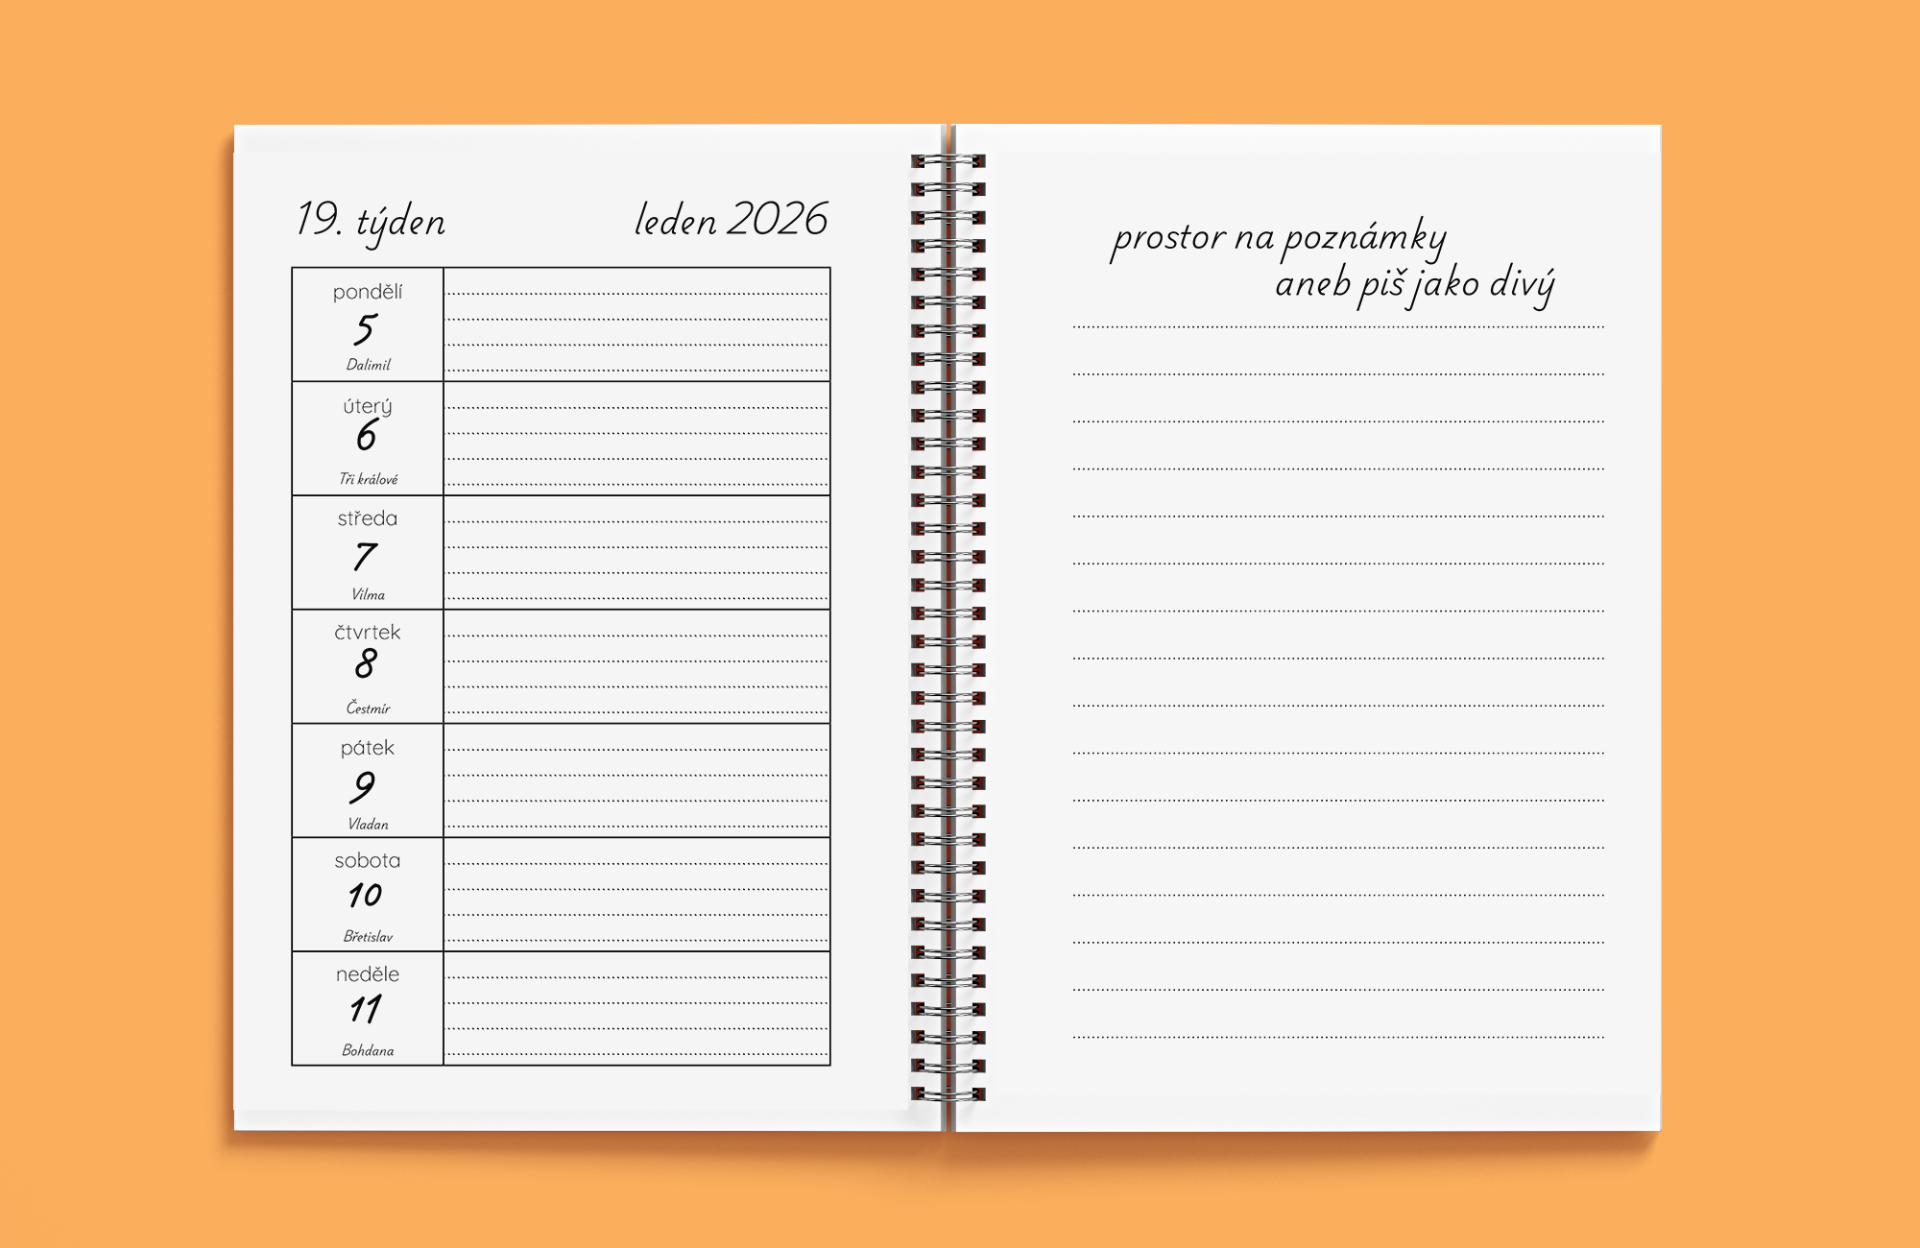 19. týden leden 2026
pondělí
5
Dalimil
úterý
6
Tři králové
středa
7
Vilma
čtvrtek
8
Čestmír
pátek
9
Vladan
sobota
10
Břetislav
neděle
11
Bohdana
prostor na poznámky
aneb piš jako divý